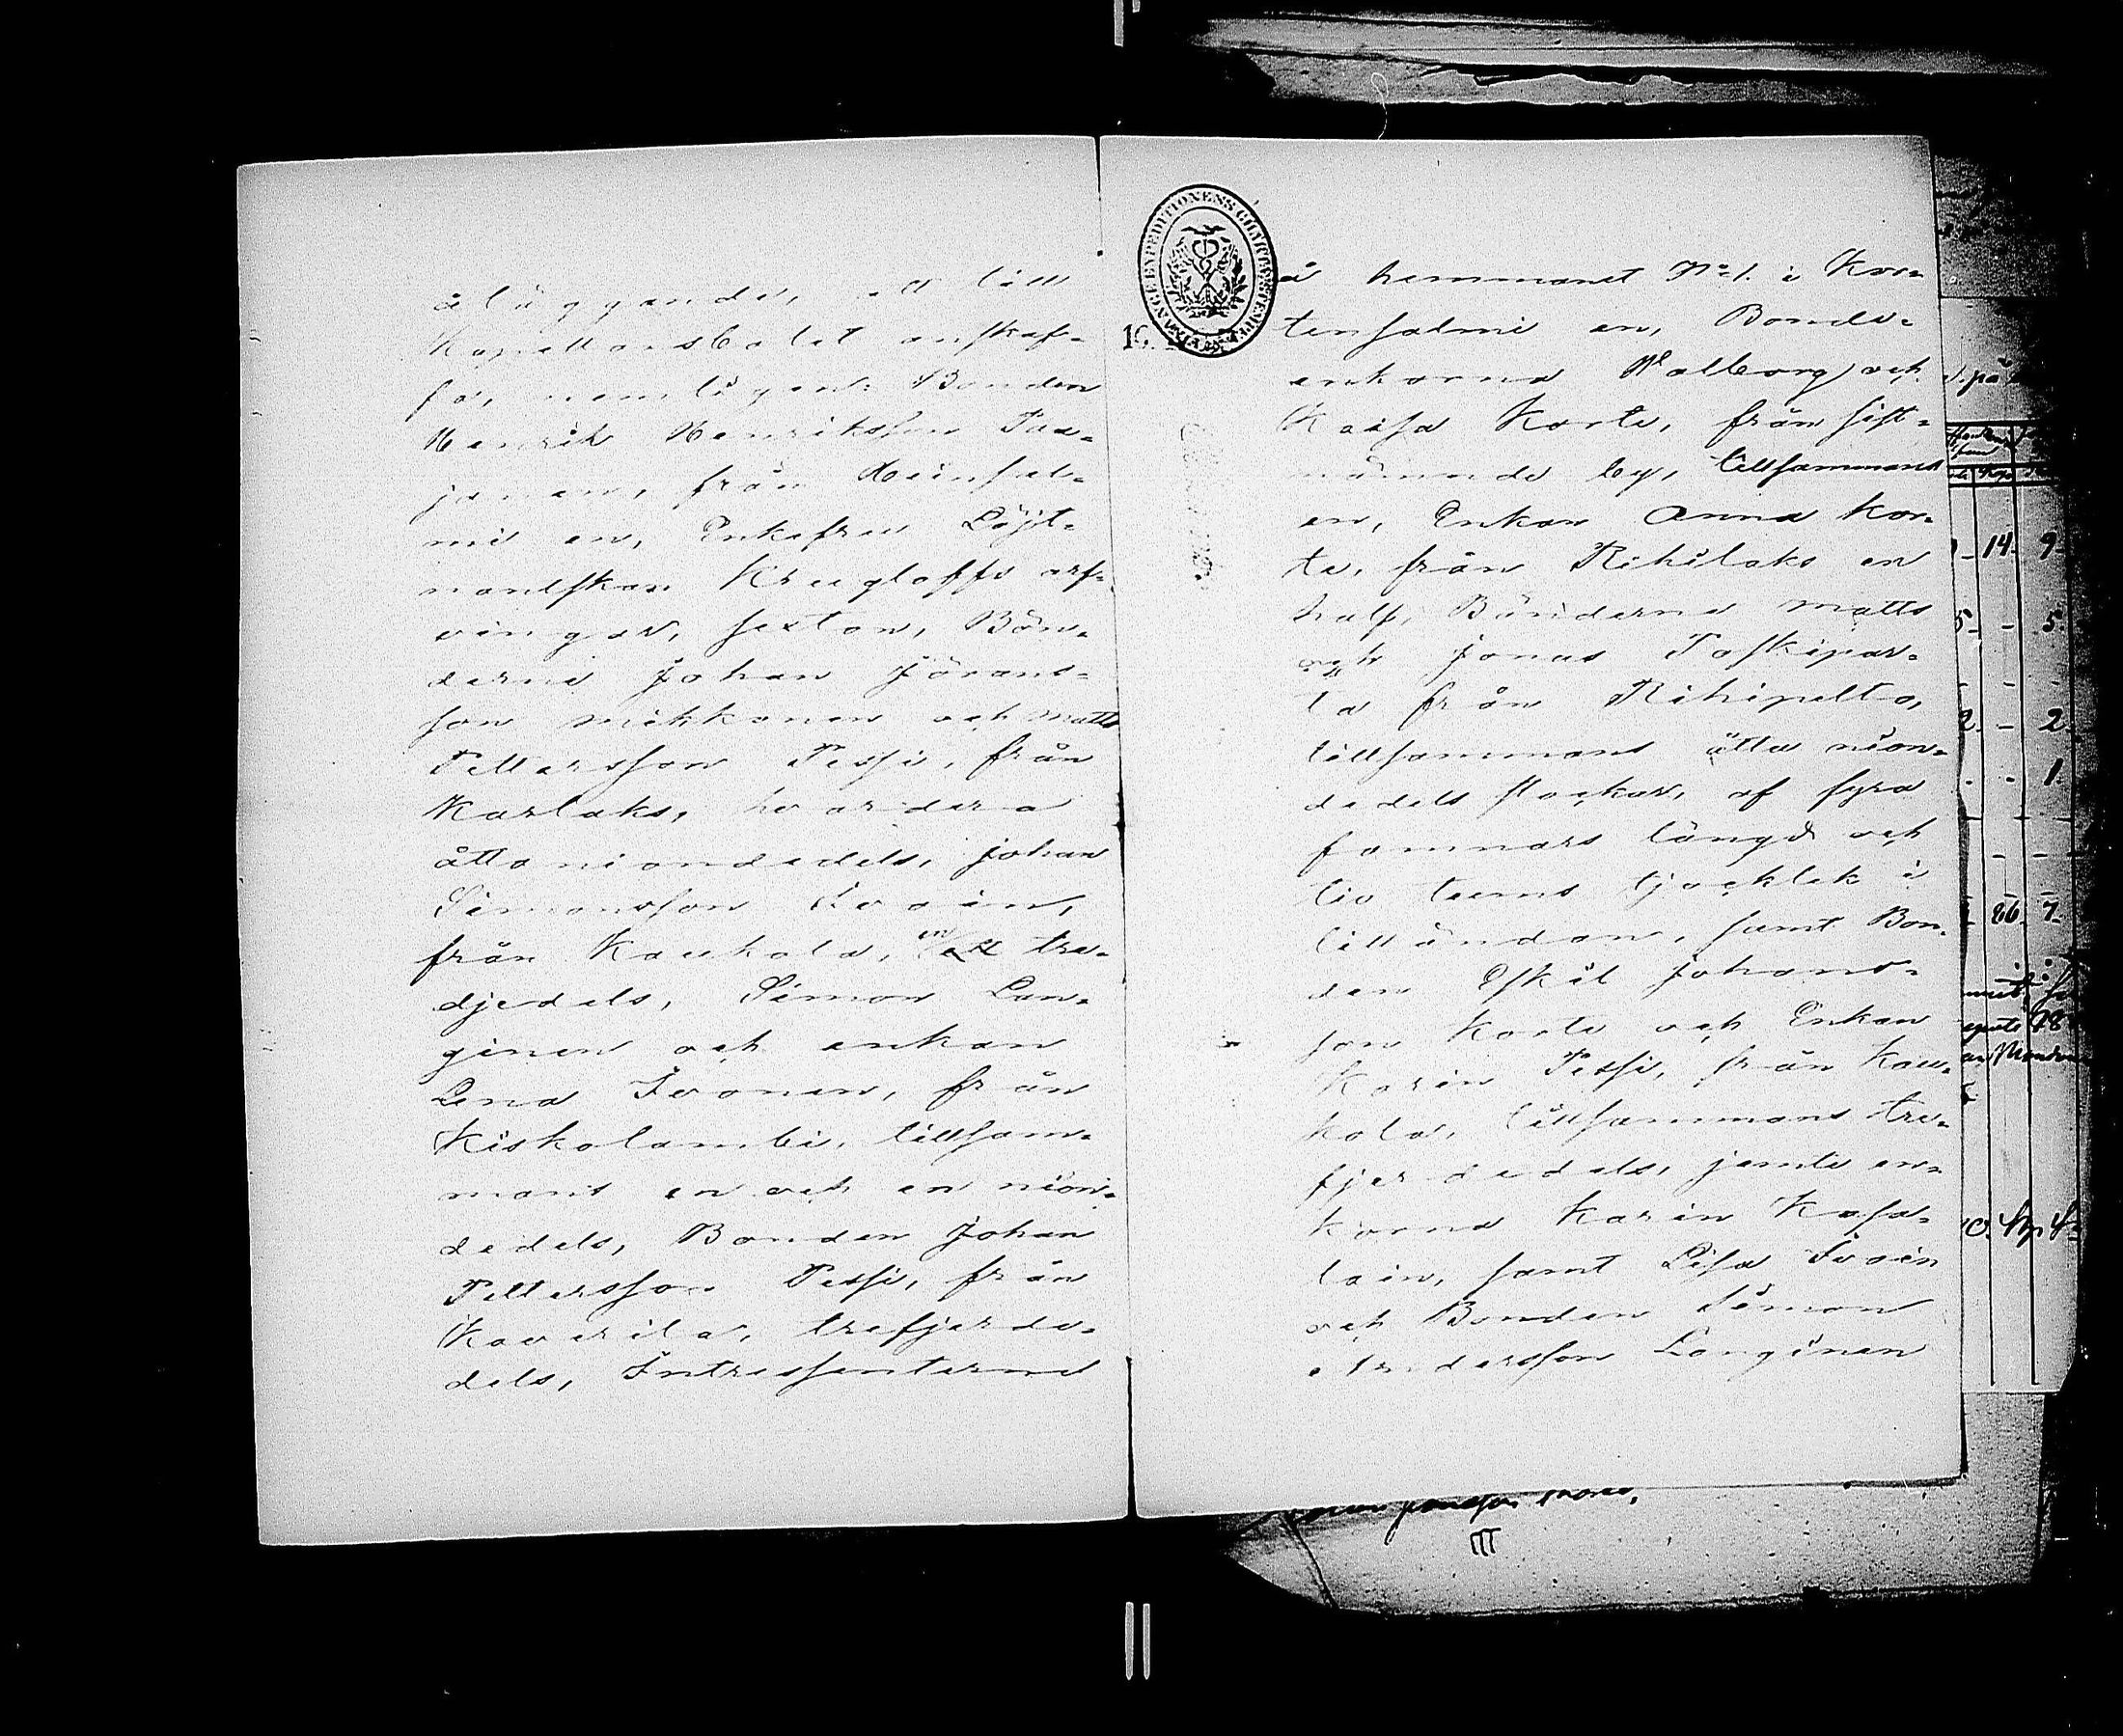 åläggande, att till
Kapellansbolet anskaf-
fa, nemligen: Bonden
Henrik Henriksson Paa-
janen, från Heinsal-
mi en, Enkefru Löjt-
nantskan Krugloffs arf-
vingar, sexton, Bön-
derne Johan Jörans-
son Mikkonen och Matts
Pettersson Pessi, från
Karlaks, hvardera
åtta niondedels, Johan
Simonsson Ivoin,
från Kaukola, en ett tre-
djedels, Simon Lan-
ginen och enkan
Lena Ivonen, från
Kiskolambi, tillsam-
mans en och en nion-
dedels, Bonden Johan
Pettersson Pessi, från
Kaverila, trefjerde-
dels, Intressenterne
å hemmanet No 1. i Kor-
tensalmi en, Bonde-
enkorna Walborg och
Kaisa Korte, från sist-
nämnde by, tillsammans
en, Enkan Anna Kor-
te, från Rihilaks en
half, Bönderne Matts
och Jonas Paskipar-
ta från Rihipelto,
tillsammans åtta nion-
dedels stockar, af fyra
famnars längd och
tio tums tjocklek i
lilländan, samt Bon-
den Eskil Johans-
son Korte och Enkan
Karin Pessi, från Kau-
kola, tillsammans tre-
fjerdedels, jemte en-
korna Karin Kasa-
lain, samt Lisa Ivoin
och Bonden Simon
Andersson Langinen
FINANCE EXPEDITIONENS CHARTÆ STEMPEL
på
14 9
5 - 5
2 - 2
1
86 7
III